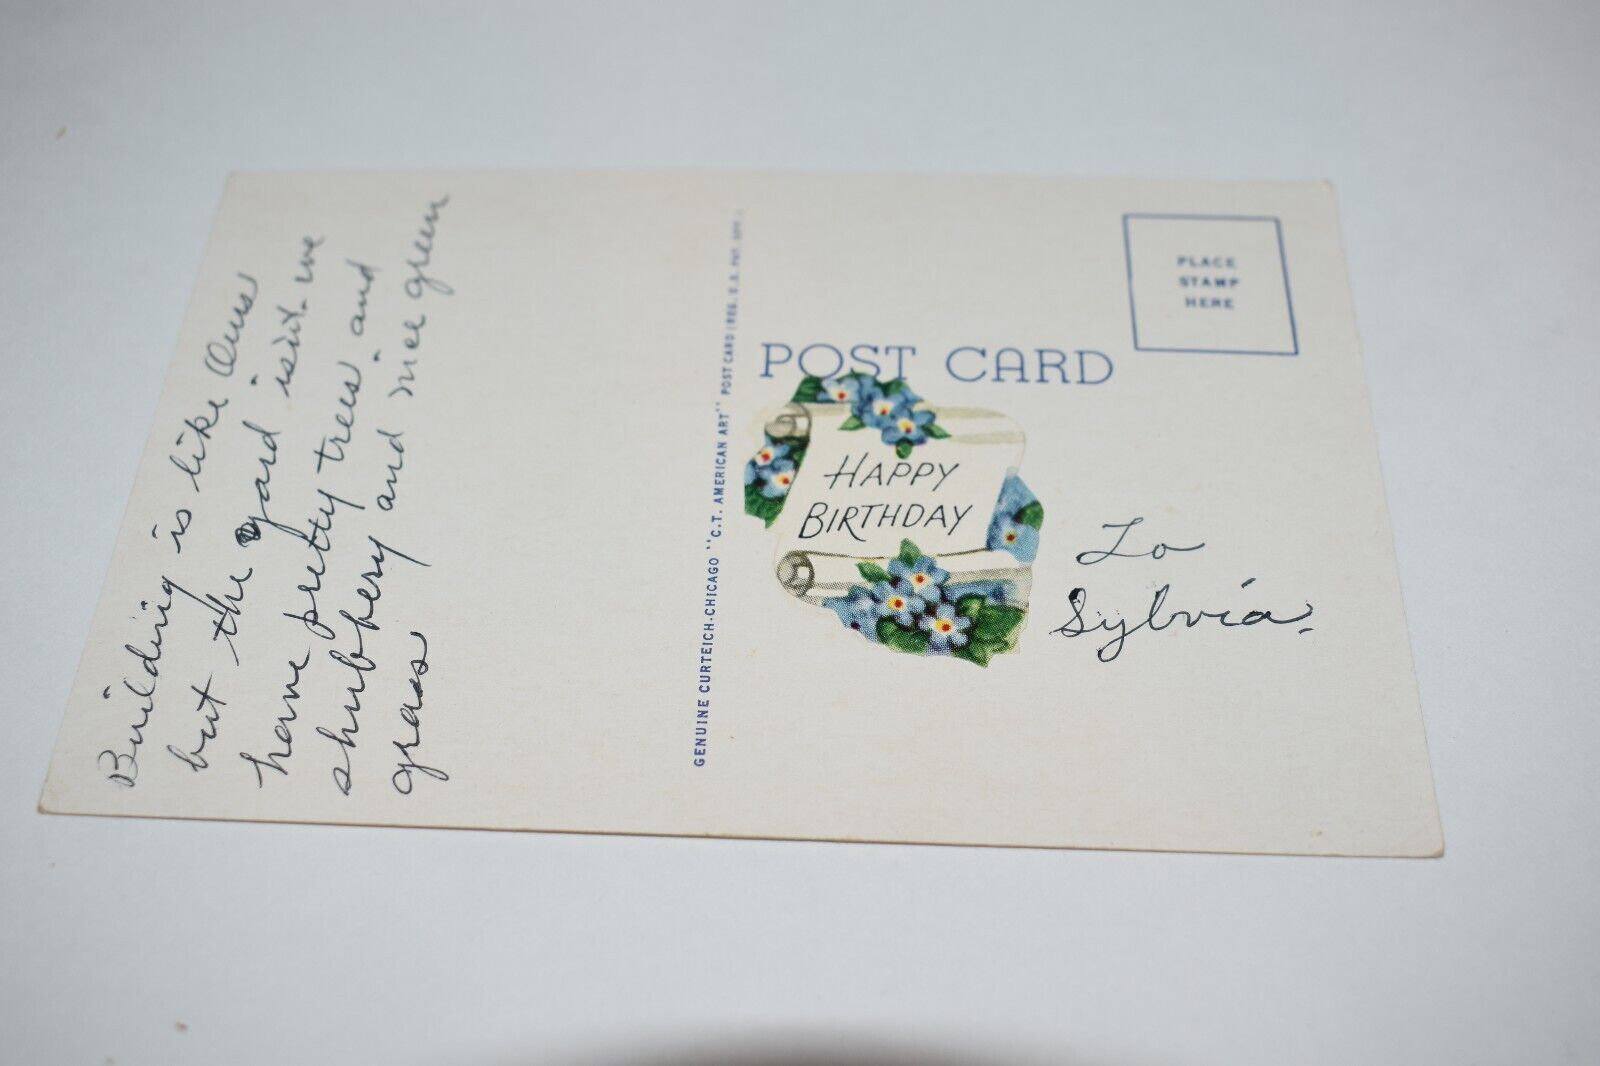 Building is like Ours
but the yard isn't. we
have pretty trees and
shubbery and nice green
grass
GENUINE CURTEICH-CHICAGO "C.T. AMERICAN ART" POST CARD (REG. U.S. PAT. OFF.)
POST CARD
PLACE
STAMP
HERE
HAPPY
BIRTHDAY
To
Sylvia.